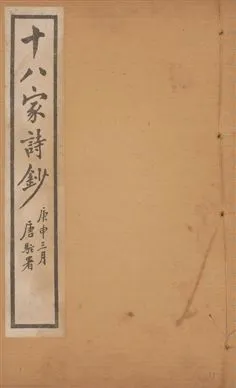 十八家詩鈔
庚申三月
唐駝署